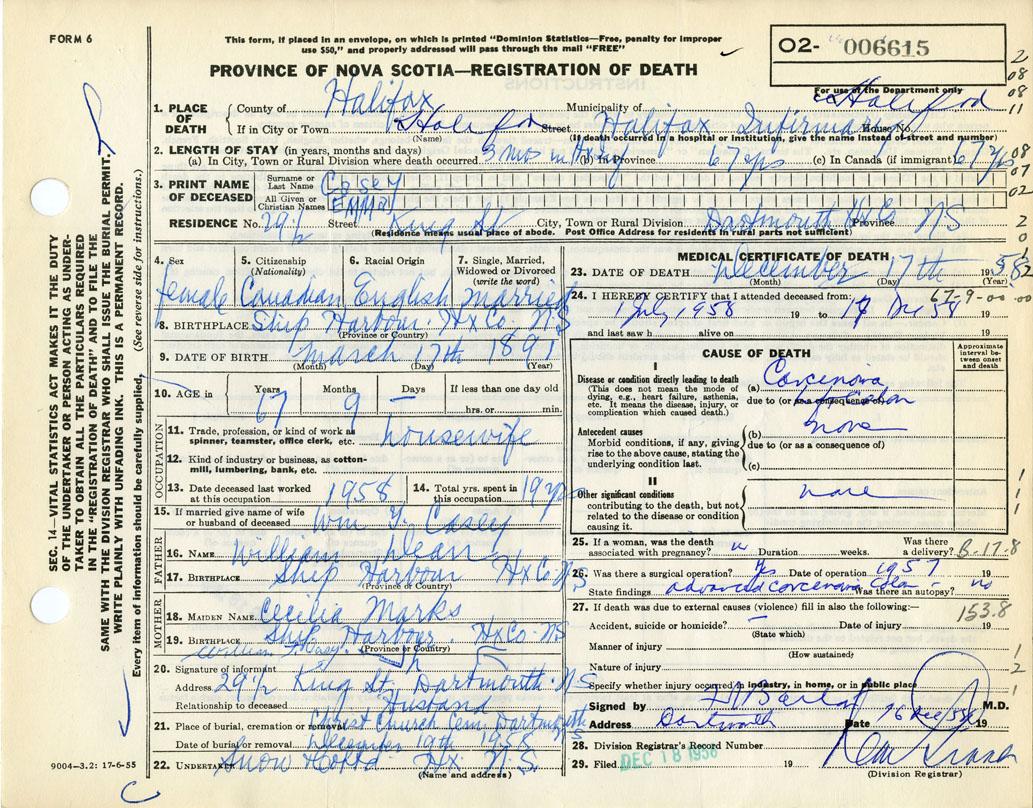 FORM 6
This form, if placed in an envelope, on which is printed "Dominion Statistics—Free, penalty for improper
use $50," and properly addressed will pass through the mail "FREE"
O2- 006615
PROVINCE OF NOVA SCOTIA—REGISTRATION OF DEATH
For use of the Department only
SEC. 14—VITAL STATISTICS ACT MAKES IT THE DUTY
OF THE UNDERTAKER OR PERSON ACTING AS UNDER-
TAKER TO OBTAIN ALL THE PARTICULARS REQUIRED
IN THE "REGISTRATION OF DEATH" AND TO FILE THE
SAME WITH THE DIVISION REGISTRAR WHO SHALL ISSUE THE BURIAL PERMIT.
WRITE PLAINLY WITH UNFADING INK. THIS IS A PERMANENT RECORD.
Every item of information should be carefully supplied. (See reverse side for instructions.)
1. PLACE OF DEATH County of Halifax Municipality of Halifax
If in City or Town Halifax Street Halifax Infirmary House No.
(Name) (If death occurred in a hospital or institution, give the name instead of street and number)
2. LENGTH OF STAY (in years, months and days)
(a) In City, Town or Rural Division where death occurred 3 mos in (b) In Province 67 yrs (c) In Canada (if immigrant) 67 yrs
3. PRINT NAME OF DECEASED Surname or Last Name Casey
All Given or Christian Names EMMA
RESIDENCE No. 29½ Street King St City, Town or Rural Division Dartmouth Hx Co Province NS
(Residence means usual place of abode. Post Office Address for residents in rural parts not sufficient)
4. Sex 5. Citizenship (Nationality) 6. Racial Origin 7. Single, Married, Widowed or Divorced (write the word)
female Canadian English married
8. BIRTHPLACE Ship Harbour Hx Co. NS
(Province or Country)
9. DATE OF BIRTH March 17th 1891
(Month) (Day) (Year)
10. AGE in Years Months Days If less than one day old
67 9 — hrs. or min.
OCCUPATION
11. Trade, profession, or kind of work as spinner, teamster, office clerk, etc. housewife
12. Kind of industry or business, as cotton-mill, lumbering, bank, etc.
13. Date deceased last worked at this occupation 1958 14. Total yrs. spent in this occupation 19 yrs
15. If married give name of wife or husband of deceased Wm F. Casey
FATHER
16. NAME William Dean
17. BIRTHPLACE Ship Harbour Hx Co. NS
(Province or Country)
MOTHER
18. MAIDEN NAME Cecilia Marks
19. BIRTHPLACE Ship Harbour. Hx Co. NS
(Province or Country)
20. Signature of informant William F. Casey
Address 29½ King St. Dartmouth. NS
Relationship to deceased Husband
21. Place of burial, cremation or removal Christ Church Cem. Dartmouth NS
Date of burial or removal December 19th 1958
22. UNDERTAKER Snow Hx. N.S.
(Name and address)
9004—3.2: 17-6-55
MEDICAL CERTIFICATE OF DEATH
23. DATE OF DEATH December 17th 1958
(Month) (Day) (Year)
24. I HEREBY CERTIFY that I attended deceased from: 67-9-00-00
1 July 1958 19 to 17 Dec 58 19
and last saw h alive on 19
CAUSE OF DEATH
Approximate interval between onset and death
I
Disease or condition directly leading to death (a)
(This does not mean the mode of dying, e.g., heart failure, asthenia, etc. It means the disease, injury, or complication which caused death.) due to (or as a consequence of)
Antecedent causes
Morbid conditions, if any, giving rise to the above cause, stating the underlying condition last. (b) none
due to (or as a consequence of)
(c)
II
Other significant conditions contributing to the death, but not related to the disease or condition causing it. none
25. If a woman, was the death associated with pregnancy? Duration weeks. Was there a delivery? B-17-8
26. Was there a surgical operation? Yes Date of operation 1957 19
State findings advanced colon Was there an autopsy? no
27. If death was due to external causes (violence) fill in also the following:— 153.8
Accident, suicide or homicide? — Date of injury 19
(State which)
Manner of injury
(How sustained)
Nature of injury
Specify whether injury occurred in industry, in home, or in public place
Signed by M.D.
Address Dartmouth Date Dec/58 19
28. Division Registrar's Record Number
29. Filed DEC 18 1958 19
(Division Registrar)